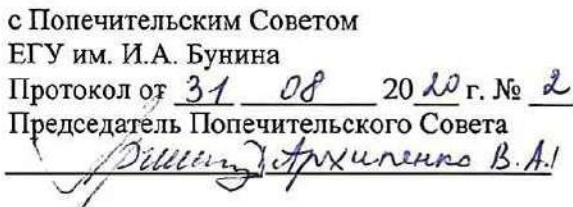 с Попечительским Советом
ЕГУ им. И.А. Бунина
Протокол от 31 08 2020 г. № 2
Председатель Попечительского Совета
Архипенко В.А.